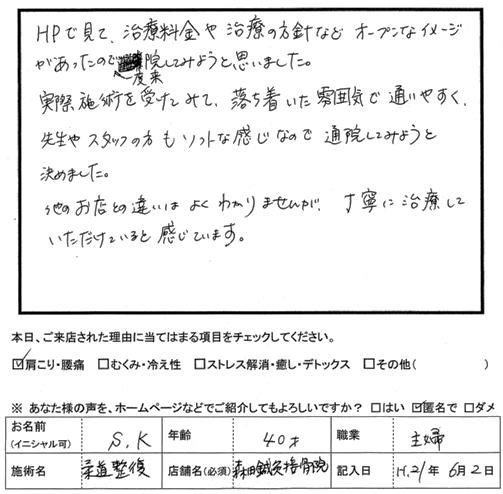 HPで見て、治療料金や治療の方針など オープンなイメージ
があったので来院してみようと思いました。
実際施術を受けてみて、落ち着いた雰囲気で通いやすく、
先生やスタッフの方もソフトな感じなので通院してみようと
決めました。
他のお店との違いは よくわかりませんが、丁寧に治療して
いただけていると感じています。
本日、ご来店された理由に当てはまる項目をチェックしてください。
☑肩こり・腰痛 □むくみ・冷え性 □ストレス解消・癒し・デトックス □その他( )
※ あなた様の声を、ホームページなどでご紹介してもよろしいですか? □はい ☑匿名で □ダメ
お名前
(イニシャル可) S.K 年齢 40才 職業 主婦
施術名 柔道整復 店舗名(必須) 森田鍼灸接骨院 記入日 H.21年 6月2日